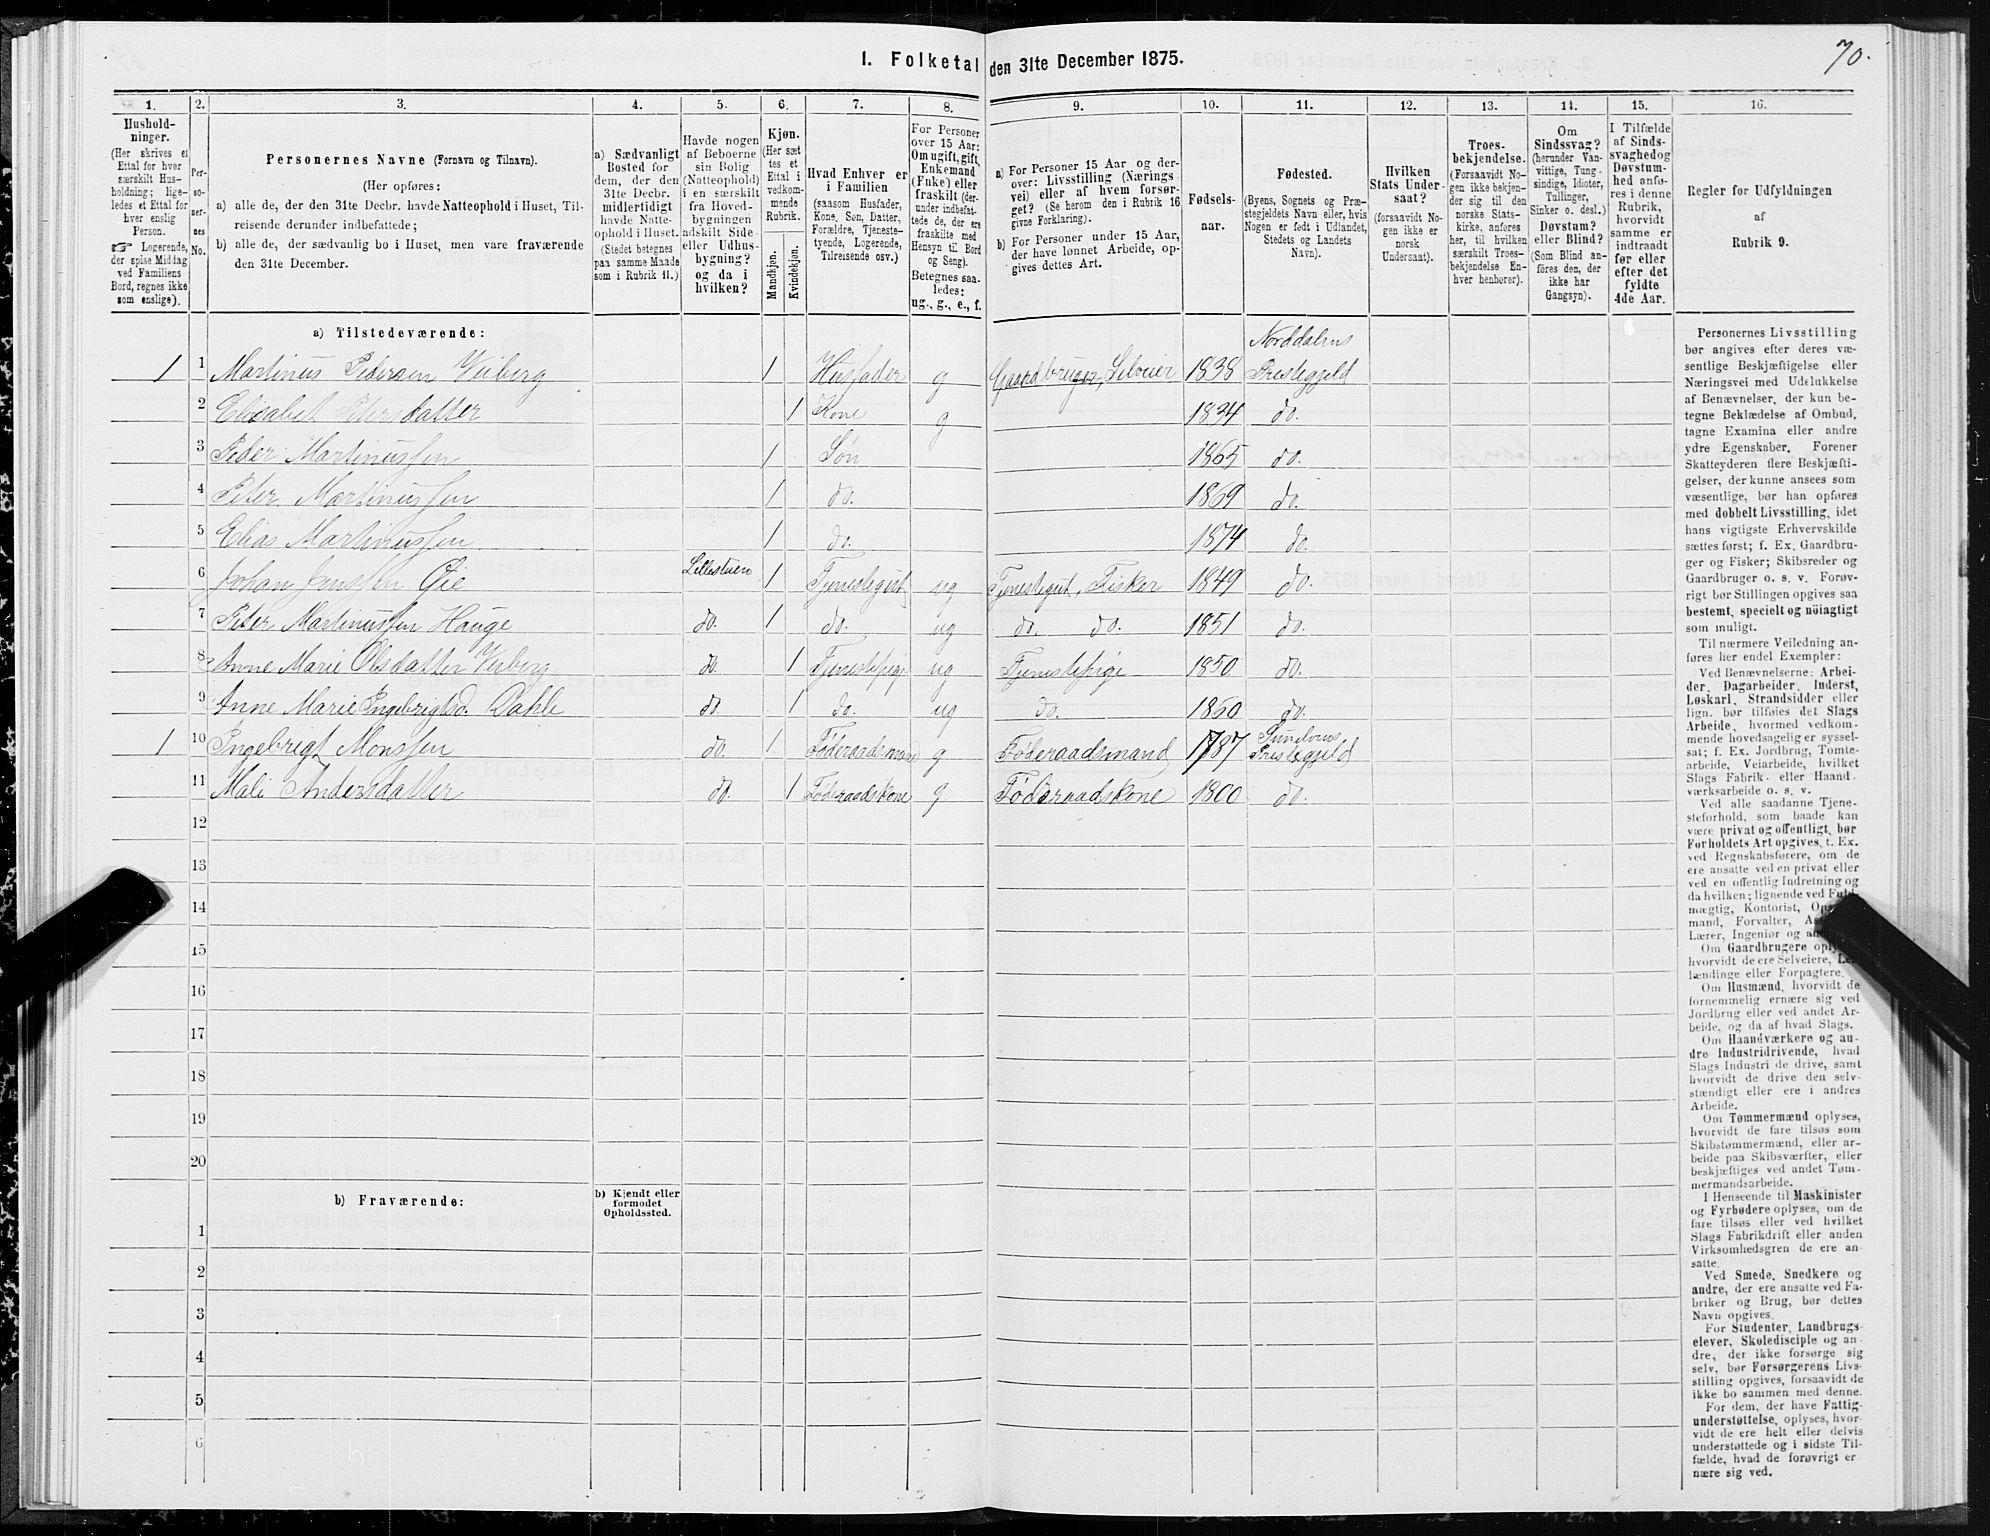 70.
1. Folketal den 31te December 1875.
1. 2. 3. 4. 5. 6. 7. 8. 9. 10. 11. 12. 13. 14. 15. 16.
Hushold-
ninger.
(Her skrives et
Ettal for hver
særskilt Hus-
holdning; lige-
ledes et Ettal for
hver enslig
Person.
☞ Logerende,
der spise Middag
ved Familiens
Bord, regnes ikke
som enslige).
Per-
so-
ner-
nes
No.
Personernes Navne (Fornavn og Tilnavn).
(Her opføres:
a) alle de, der den 31te Decbr. havde Natteophold i Huset, Til-
reisende derunder indbefattede;
b) alle de, der sædvanlig bo i Huset, men vare fraværende
den 31te December.
a) Sædvanligt
Bosted for
dem, der den
31te Decbr.
midlertidigt
havde Natte-
ophold i Huset.
(Stedet betegnes
paa samme Maade
som i Rubrik 11.)
Havde nogen
af Beboerne
sin Bolig
(Natteophold)
i en særskilt
fra Hoved-
bygningen
adskilt Side-
eller Udhus-
bygning?
og da i
hvilken?
Kjøn.
(Her sæt
tes et
Ettal i
vedkom-
mende
Rubrik.
Mandkjøn.
Kvindekjøn.
Hvad Enhver er
i Familien
(saasom Husfader,
Kone, Søn, Datter,
Forældre, Tjeneste-
tyende, Logerende,
Tilreisende osv.)
For Personer
over 15 Aar:
Om ugift, gift,
Enkemand
(Enke) eller
fraskilt (der-
under indbefat-
tede de, der ere
fraskilte med
Hensyn til Bord
og Seng).
Betegnes saa-
ledes:
ug., g., e., f.
a) For Personer 15 Aar og der-
over: Livsstilling (Nærings-
vei) eller af hvem forsør-
get? (Se herom den i Rubrik 16
givne Forklaring).
b) For Personer under 15 Aar,
der have lønnet Arbeide, op-
gives dettes Art.
Fødsels-
aar.
Fødested.
(Byens, Sognets og Præ-
stegjeldets Navn eller, hvis
Nogen er født i Udlandet,
Stedets og Landets
Navn).
Hvilken
Stats Under-
saat?
(forsaavidt No-
gen ikke er
norsk
Undersaat).
Troes-
bekjendelse.
(Forsaavidt No-
gen ikke bekjen-
der sig til den
norske Stats-
kirke, anføres
her, til hvilken
særskilt Troes-
bekjendelse En-
hver henhører).
Om
Sindssvag?
(herunder Van-
vittige, Tung-
sindige, Idioter,
Tullinger,
Sinker o. desl.)
Døvstum?
eller Blind?
(Som Blind an-
føres den, der
ikke har
Gangsyn).
I Tilfælde
af Sinds-
svaghedog
Døvstum-
hed anfø-
res i denne
Rubrik,
hvorvidt
samme er
indtraadt
før eller
efter det
fyldte
4de Aar.
Regler for Udfyldningen
af
Rubrik 9.
a) Tilstedeværende:
Norddalens
1 1 Martinus Pedersen Viiberg 1 Husfader g Gaardbruger, Selveier 1838 Prestegjeld
2 Elisabet Petersdatter 1 Kone g 1834 do.
3 Peder Martinussen 1 Søn 1865 do.
4 Peter Martinussen 1 do. 1869 do.
5 Elias Martinussen 1 do. 1874 do.
6 Johan Jenssen Øie Lillestuen 1 Tjenestegut ug Tjenestegut, Fisker 1849 do.
7 Peter Martinussen Hauge do. 1 do. ug do. do. 1851 do.
8 Anne Marie Olsdatter Viiberg do. 1 Tjenestepige ug Tjenestepige 1850 do.
9 Anne Marie Ingebrigtsd. Dahle do. 1 do. ug do. 1860 do.
Sundevens
1 10 Ingebrigt Monssen do. 1 Føderaadsmand g Føderaadsmand 1787 Prestegjeld
11 Mali Andersdatter do. 1 Føderaadskone g Føderaadskone 1800 do.
12
13
14
15
16
17
18
19
20
b) Fraværende:
b) Kjendt eller
formodet
Opholdssted.
1
2
3
4
5
6
Personernes Livsstilling
bør angives efter deres væ-
sentlige Beskjæftigelse eller
Næringsvei med Udelukkelse
af Benævnelser, der kun be-
tegne Beklædelse af Ombud,
tagne Examina eller andre
ydre Egenskaber. Forener
Skatteyderen flere Beskjæfti-
gelser, der kunne ansees som
væsentlige, bør han opføres
med dobbelt Livsstilling, idet
hans vigtigste Erhvervskilde
sættes først; f. Ex. Gaardbru-
ger og Fisker; Skibsreder og
Gaardbruger o. s. v. Forøv-
rigt bør Stillingen opgives saa
bestemt, specielt og nöiagtigt
som muligt.
Til nærmere Veiledning an-
føres her endel Exempler:
Ved Benævnelserne: Arbei-
der, Dagarbeider, Inderst,
Løskarl, Strandsidder eller
lign. bør tilføies det Slags
Arbeide, hvormed vedkom-
mende hovedsagelig er syssel-
sat; f. Ex. Jordbrug, Tomte-
arbeide, Veiarbeide, hvilket
Slags Fabrik- eller Haand-
værksarbeide o. s. v.
Ved alle saadanne Tjene-
steforhold, som baade kan
være privat og offentligt, bør
Forholdets Art opgives, t. Ex.
ved Regnskabsførere, om de
ere ansatte ved en privat eller
ved en offentlig Indretning og
da hvilken; lignende ved Fuld-
mægtig, Kontorist, Opsyns-
mand, Forvalter, As
Lærer, Ingeniør og andre.
Om Gaardbrugere oplyses,
hvorvidt de ere Selveiere, Lei-
lændinge eller Forpagtere.
Om Husmænd, hvorvidt de
fornemmelig ernære sig ved
Jordbrug eller ved andet Ar-
beide, og da af hvad Slags.
Om Haandværkere og an-
dre Industridrivende, hvad
Slags Industri de drive, samt
hvorvidt de drive den selv-
stændigt eller ere i andres
Arbeide.
Om Tømmermænd oplyses,
hvorvidt de fare tilsøs som
Skibstømmermænd, eller ar-
beide paa Skibsværfter, eller
beskjæftiges ved andet Tøm-
mermandsarbeide.
I Henseende til Maskinister
og Fyrbødere oplyses, om de
fare tilsøs eller ved hvilket
Slags Fabrikdrift eller anden
Virksomhedsgren de ere an-
satte.
Ved Smede, Snedkere og
andre, der ere ansatte ved Fa-
briker og Brug, bør dettes
Navn opgives.
For Studenter, Landbrugs-
elever, Skoledisciple og an-
dre, der ikke forsørge sig
selv, bør Forsørgerens Livs-
stilling opgives, forsaavidt de
ikke bo sammen med denne.
For dem, der have Fattig-
understøttelse, oplyses, hvor-
vidt de ere helt eller delvis
understøttede og i sidste Til-
fælde, hvad de forøvrigt er-
nære sig ved.